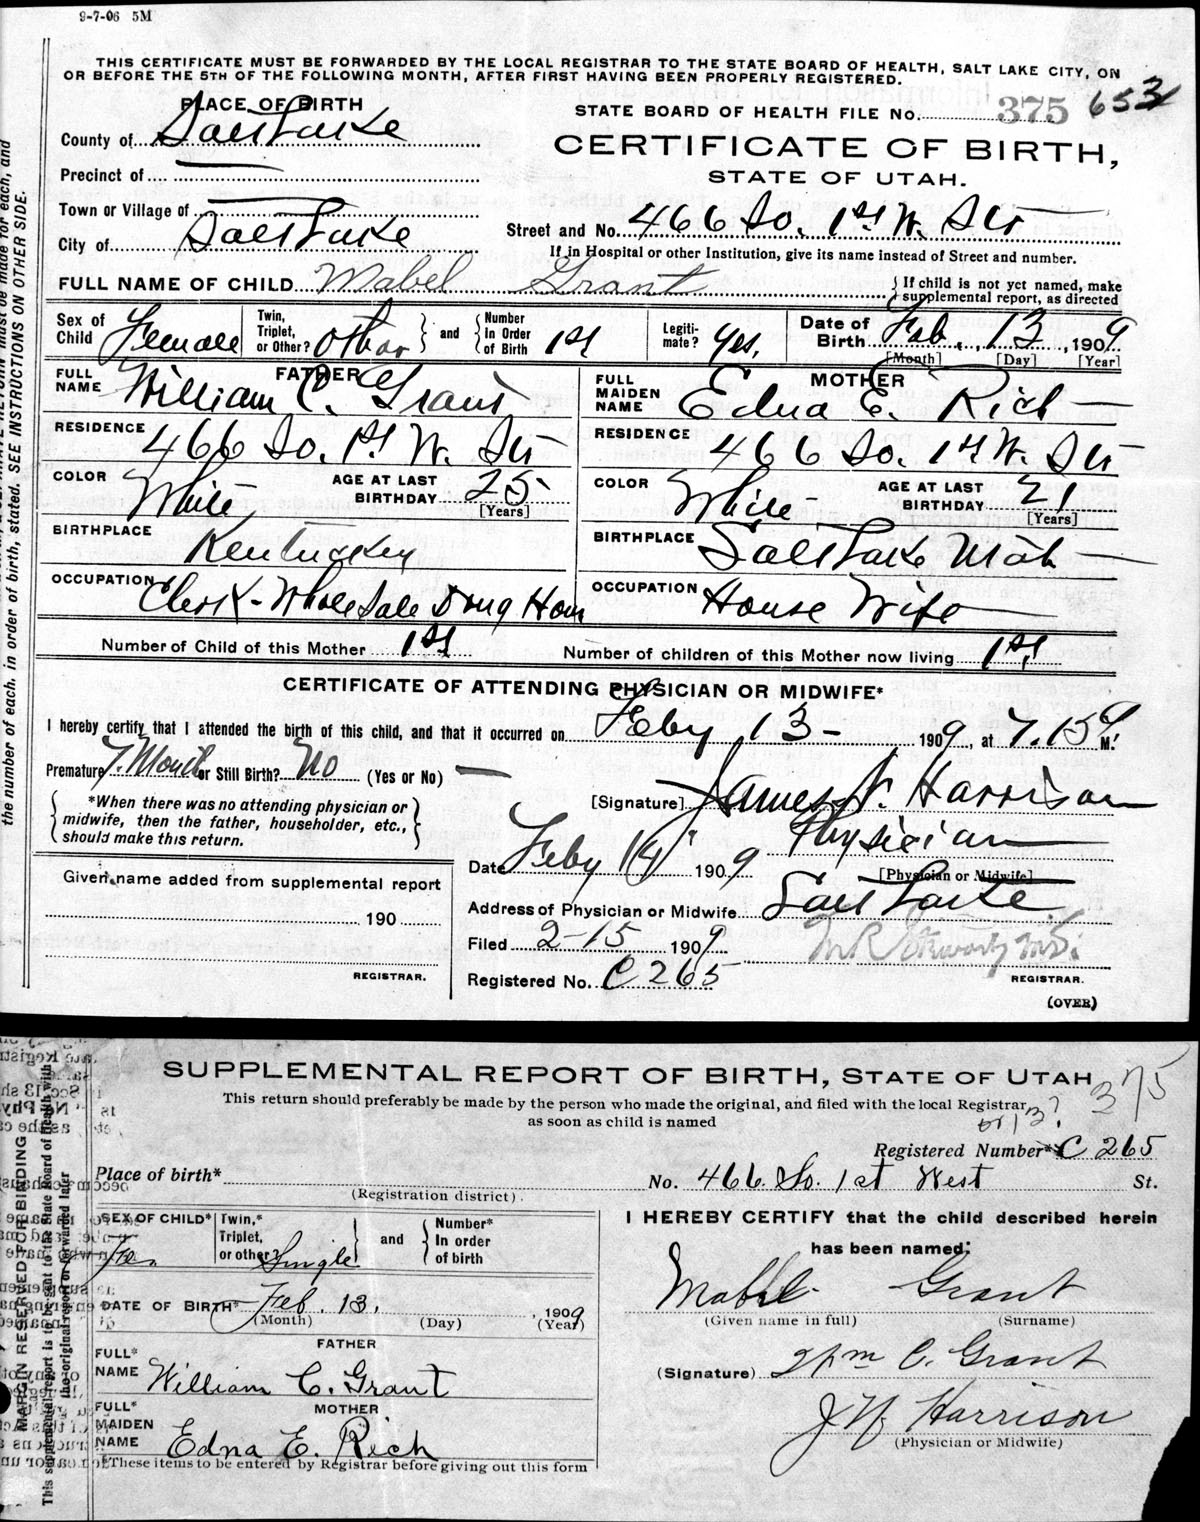 9-7-06 5M
THIS CERTIFICATE MUST BE FORWARDED BY THE LOCAL REGISTRAR TO THE STATE BOARD OF HEALTH, SALT LAKE CITY, ON
OR BEFORE THE 5TH OF THE FOLLOWING MONTH, AFTER FIRST HAVING BEEN PROPERLY REGISTERED.
the number of each, in order of birth, stated. SEE INSTRUCTIONS ON OTHER SIDE.
PLACE OF BIRTH
County of Salt Lake
Precinct of
Town or Village of
City of Salt Lake
STATE BOARD OF HEALTH FILE No. 375 653
CERTIFICATE OF BIRTH,
STATE OF UTAH.
Street and No. 466 So. 1st W. Str
If in Hospital or other Institution, give its name instead of Street and number.
FULL NAME OF CHILD Mabel Grant
If child is not yet named, make
supplemental report, as directed
Sex of Child Female
Twin, Triplet, or Other? other and Number In Order of Birth 1st
Legitimate? Yes.
Date of Birth Feb. 13, 1909
[Month] [Day] [Year]
FATHER
FULL NAME William C. Grant
RESIDENCE 466 So. 1st W. Str
COLOR White AGE AT LAST BIRTHDAY 25 [Years]
BIRTHPLACE Kentuckey
OCCUPATION Clerk - Whole Sale Drug Hous
MOTHER
FULL MAIDEN NAME Edna E. Rich
RESIDENCE 466 So. 1st W. Str
COLOR White AGE AT LAST BIRTHDAY 21 [Years]
BIRTHPLACE Salt Lake Utah
OCCUPATION House Wife
Number of Child of this Mother 1st Number of children of this Mother now living 1st
CERTIFICATE OF ATTENDING PHYSICIAN OR MIDWIFE*
I hereby certify that I attended the birth of this child, and that it occurred on Feby 13 - 1909, at 7.15 P M.
Premature 7. Month or Still Birth? No (Yes or No)
*When there was no attending physician or
midwife, then the father, householder, etc.,
should make this return.
[Signature] James W. Harrison
Physician
[Physician or Midwife]
Date Feby 14 1909
Address of Physician or Midwife Salt Lake
Given name added from supplemental report
190
REGISTRAR.
Filed 2-15 1909
REGISTRAR.
Registered No. C 265
(OVER)
SUPPLEMENTAL REPORT OF BIRTH, STATE OF UTAH
375
This return should preferably be made by the person who made the original, and filed with the local Registrar
as soon as child is named
or 13?
Registered Number* C 265
MARGIN RESERVED FOR BINDING
This supplemental report is to be sent to the State Board of Health with
the original report or forwarded later
Place of birth*
(Registration district).
No. 466. So. 1st West St.
SEX OF CHILD* Fem
Twin,* Triplet, or other? Single and Number* In order of birth
DATE OF BIRTH* Feb. 13, 1909
(Month) (Day) (Year)
FATHER
FULL* NAME William C. Grant
MOTHER
FULL* MAIDEN NAME Edna E. Rich
*These items to be entered by Registrar before giving out this form
I HEREBY CERTIFY that the child described herein
has been named:
Mabel Grant
(Given name in full) (Surname)
(Signature) Wm C. Grant
J W Harrison
(Physician or Midwife)